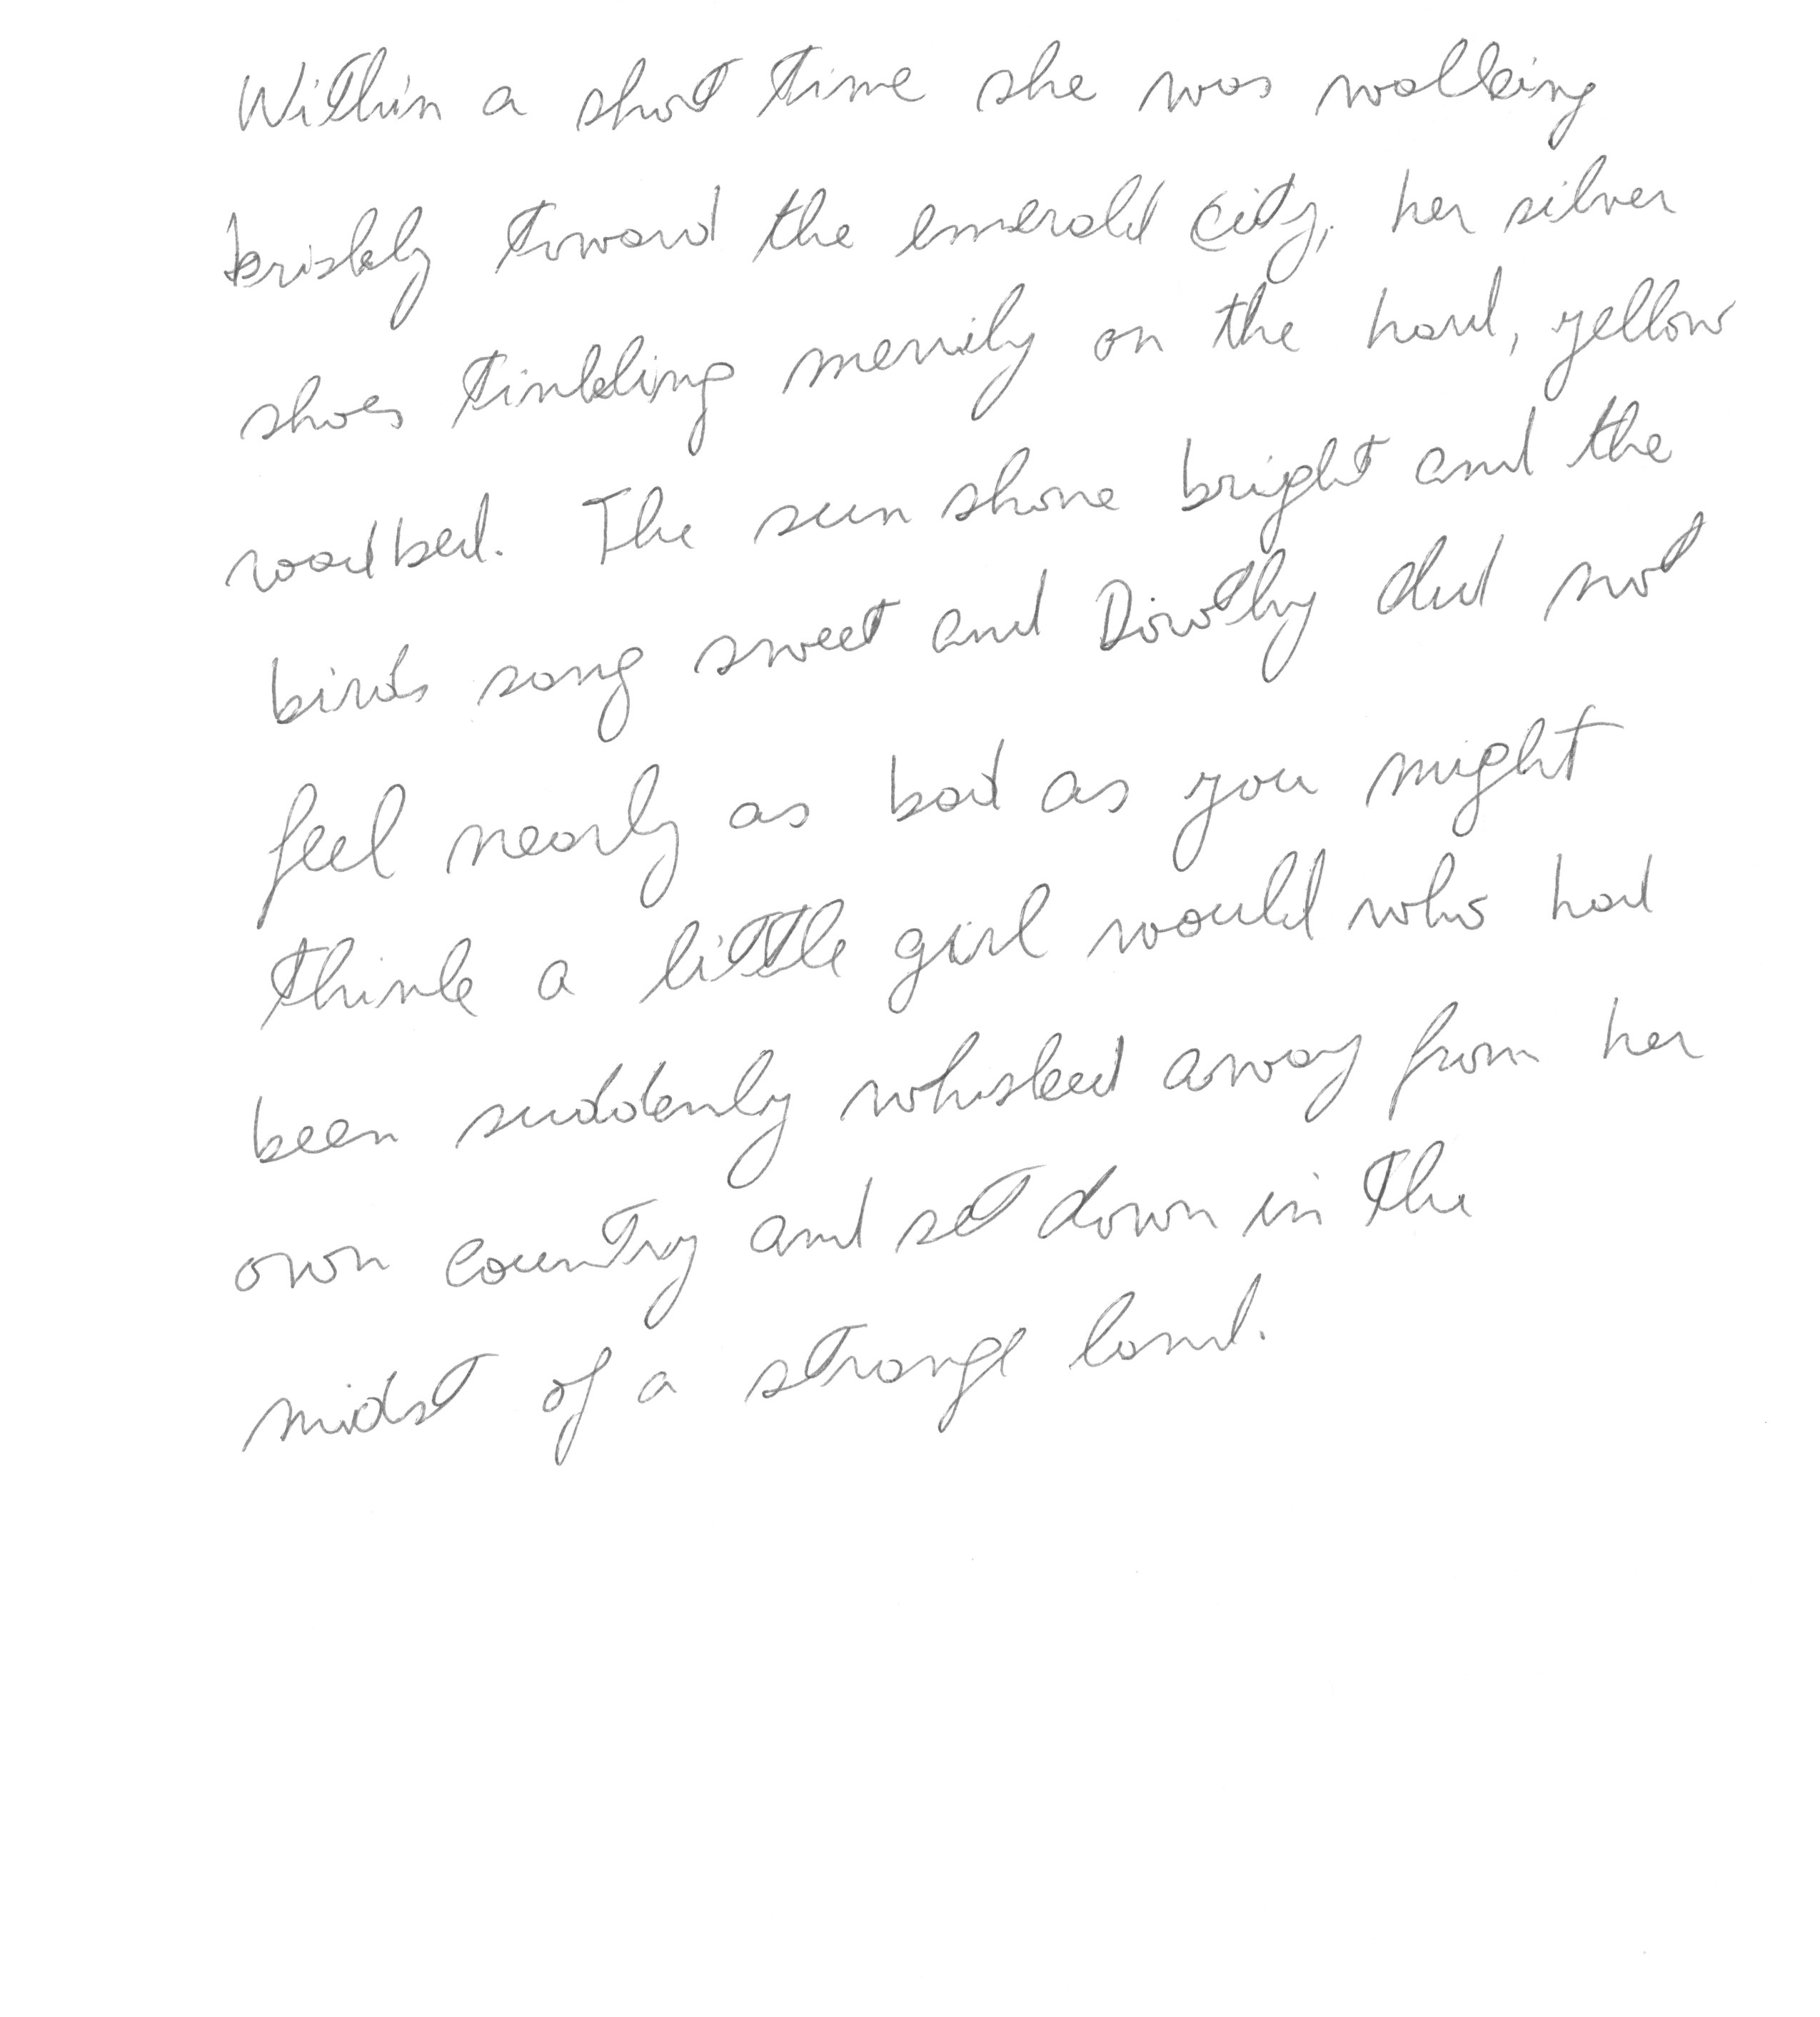 Within a short time she was walking
briskly toward the emerald City, her silver
shoes tinkling merrily on the hard, yellow
roadbed. The sun shone bright and the
birds song sweet and Dorothy did not
feel nearly as bad as you might
think a little girl would who had
been suddenly whisked away from her
own country and set down in the
midst of a strange land.